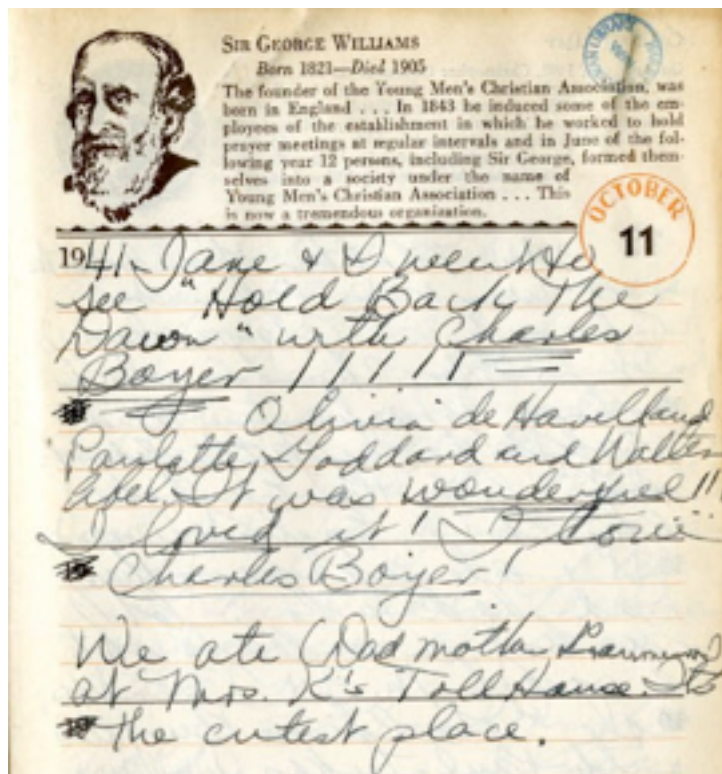 SIR GEORGE WILLIAMS
Born 1821—Died 1905
The founder of the Young Men's Christian Association, was
born in England . . . In 1843 he induced some of the em-
ployees of the establishment in which he worked to hold
prayer meetings at regular intervals and in June of the fol-
lowing year 12 persons, including Sir George, formed them-
selves into a society under the name of
Young Men's Christian Association . . . This
is now a tremendous organization.
OCTOBER
11
1941 Jane & I went to
see "Hold Back the
Dawn" with Charles
Boyer ! ! ! ! ! !
Olivia de Havilland
Paulette Goddard and Walter
Abel. It was wonderful!!
I loved it! I love
Charles Boyer!
We ate (Dad mother
at Mrs. K's Toll House. Its
the cutest place.